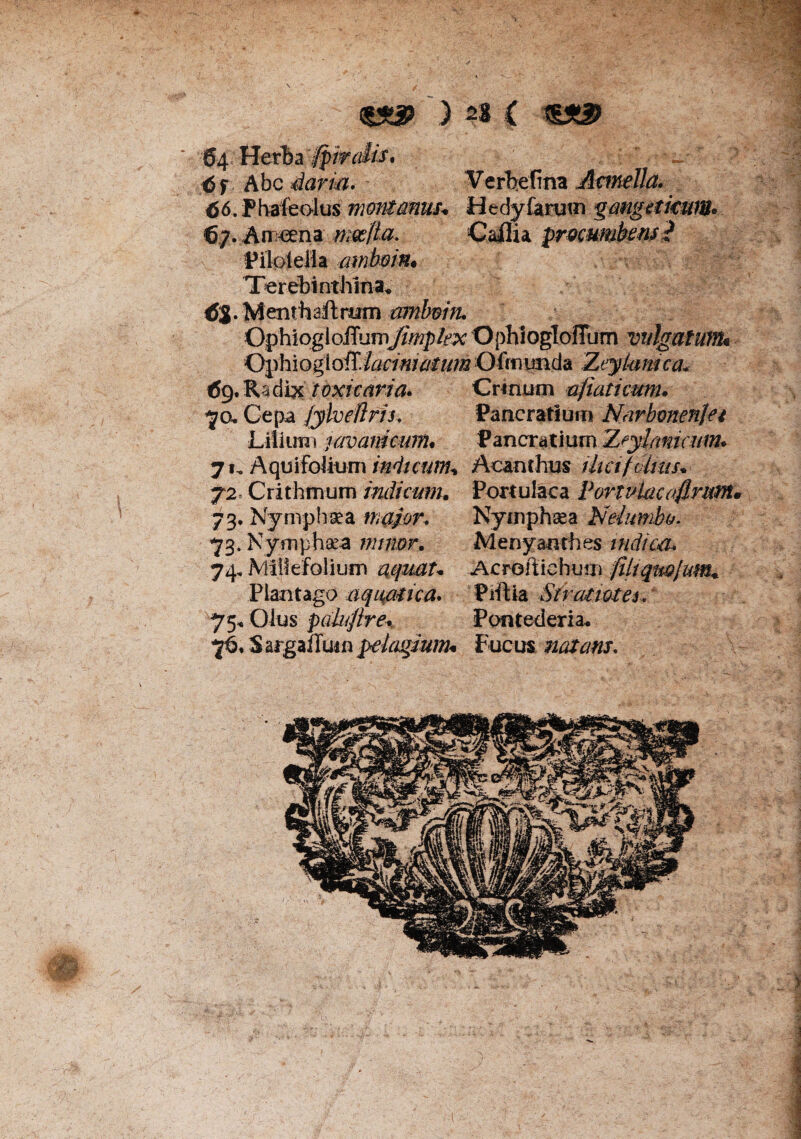 ) 28 (
64 Herba ſpiralis.
65 Abc daria. Verbeſina Acmella.
66. Phaſeolus montanus. Hedyſarum gangeticum.
67. Amœna mœſta. Caſſia procumbens?
Piloſella amboin.
Terebinthina.
68. Menthaſtrum amboin.
Ophiogloſſum ſimplex Ophiogloſſum vulgatum.
Ophiogloſſ. laciniatum Oſmunda Zeylanica.
69. Radix toxicaria. Crinum aſiaticum.
70. Cepa ſylveſtris. Pancratium Narbonenſe
Lilium javanicum. Pancratium Zeylanicum.
71. Aquifolium indicum. Acanthus ilicifolius.
72. Crithmum indicum. Portulaca Portulacaſtrum.
73. Nymphæa major. Nymphæa Nelumbo.
73. Nymphæa minor. Menyanthes indica.
74. Millefolium aquat. Acroſtichum ſiliquoſum.
Plantago aquatica. Piſtia Stratiotes.
75. Olus paluſtre. Pontederia.
76. Sargaſſum pelagium. Fucus natans.